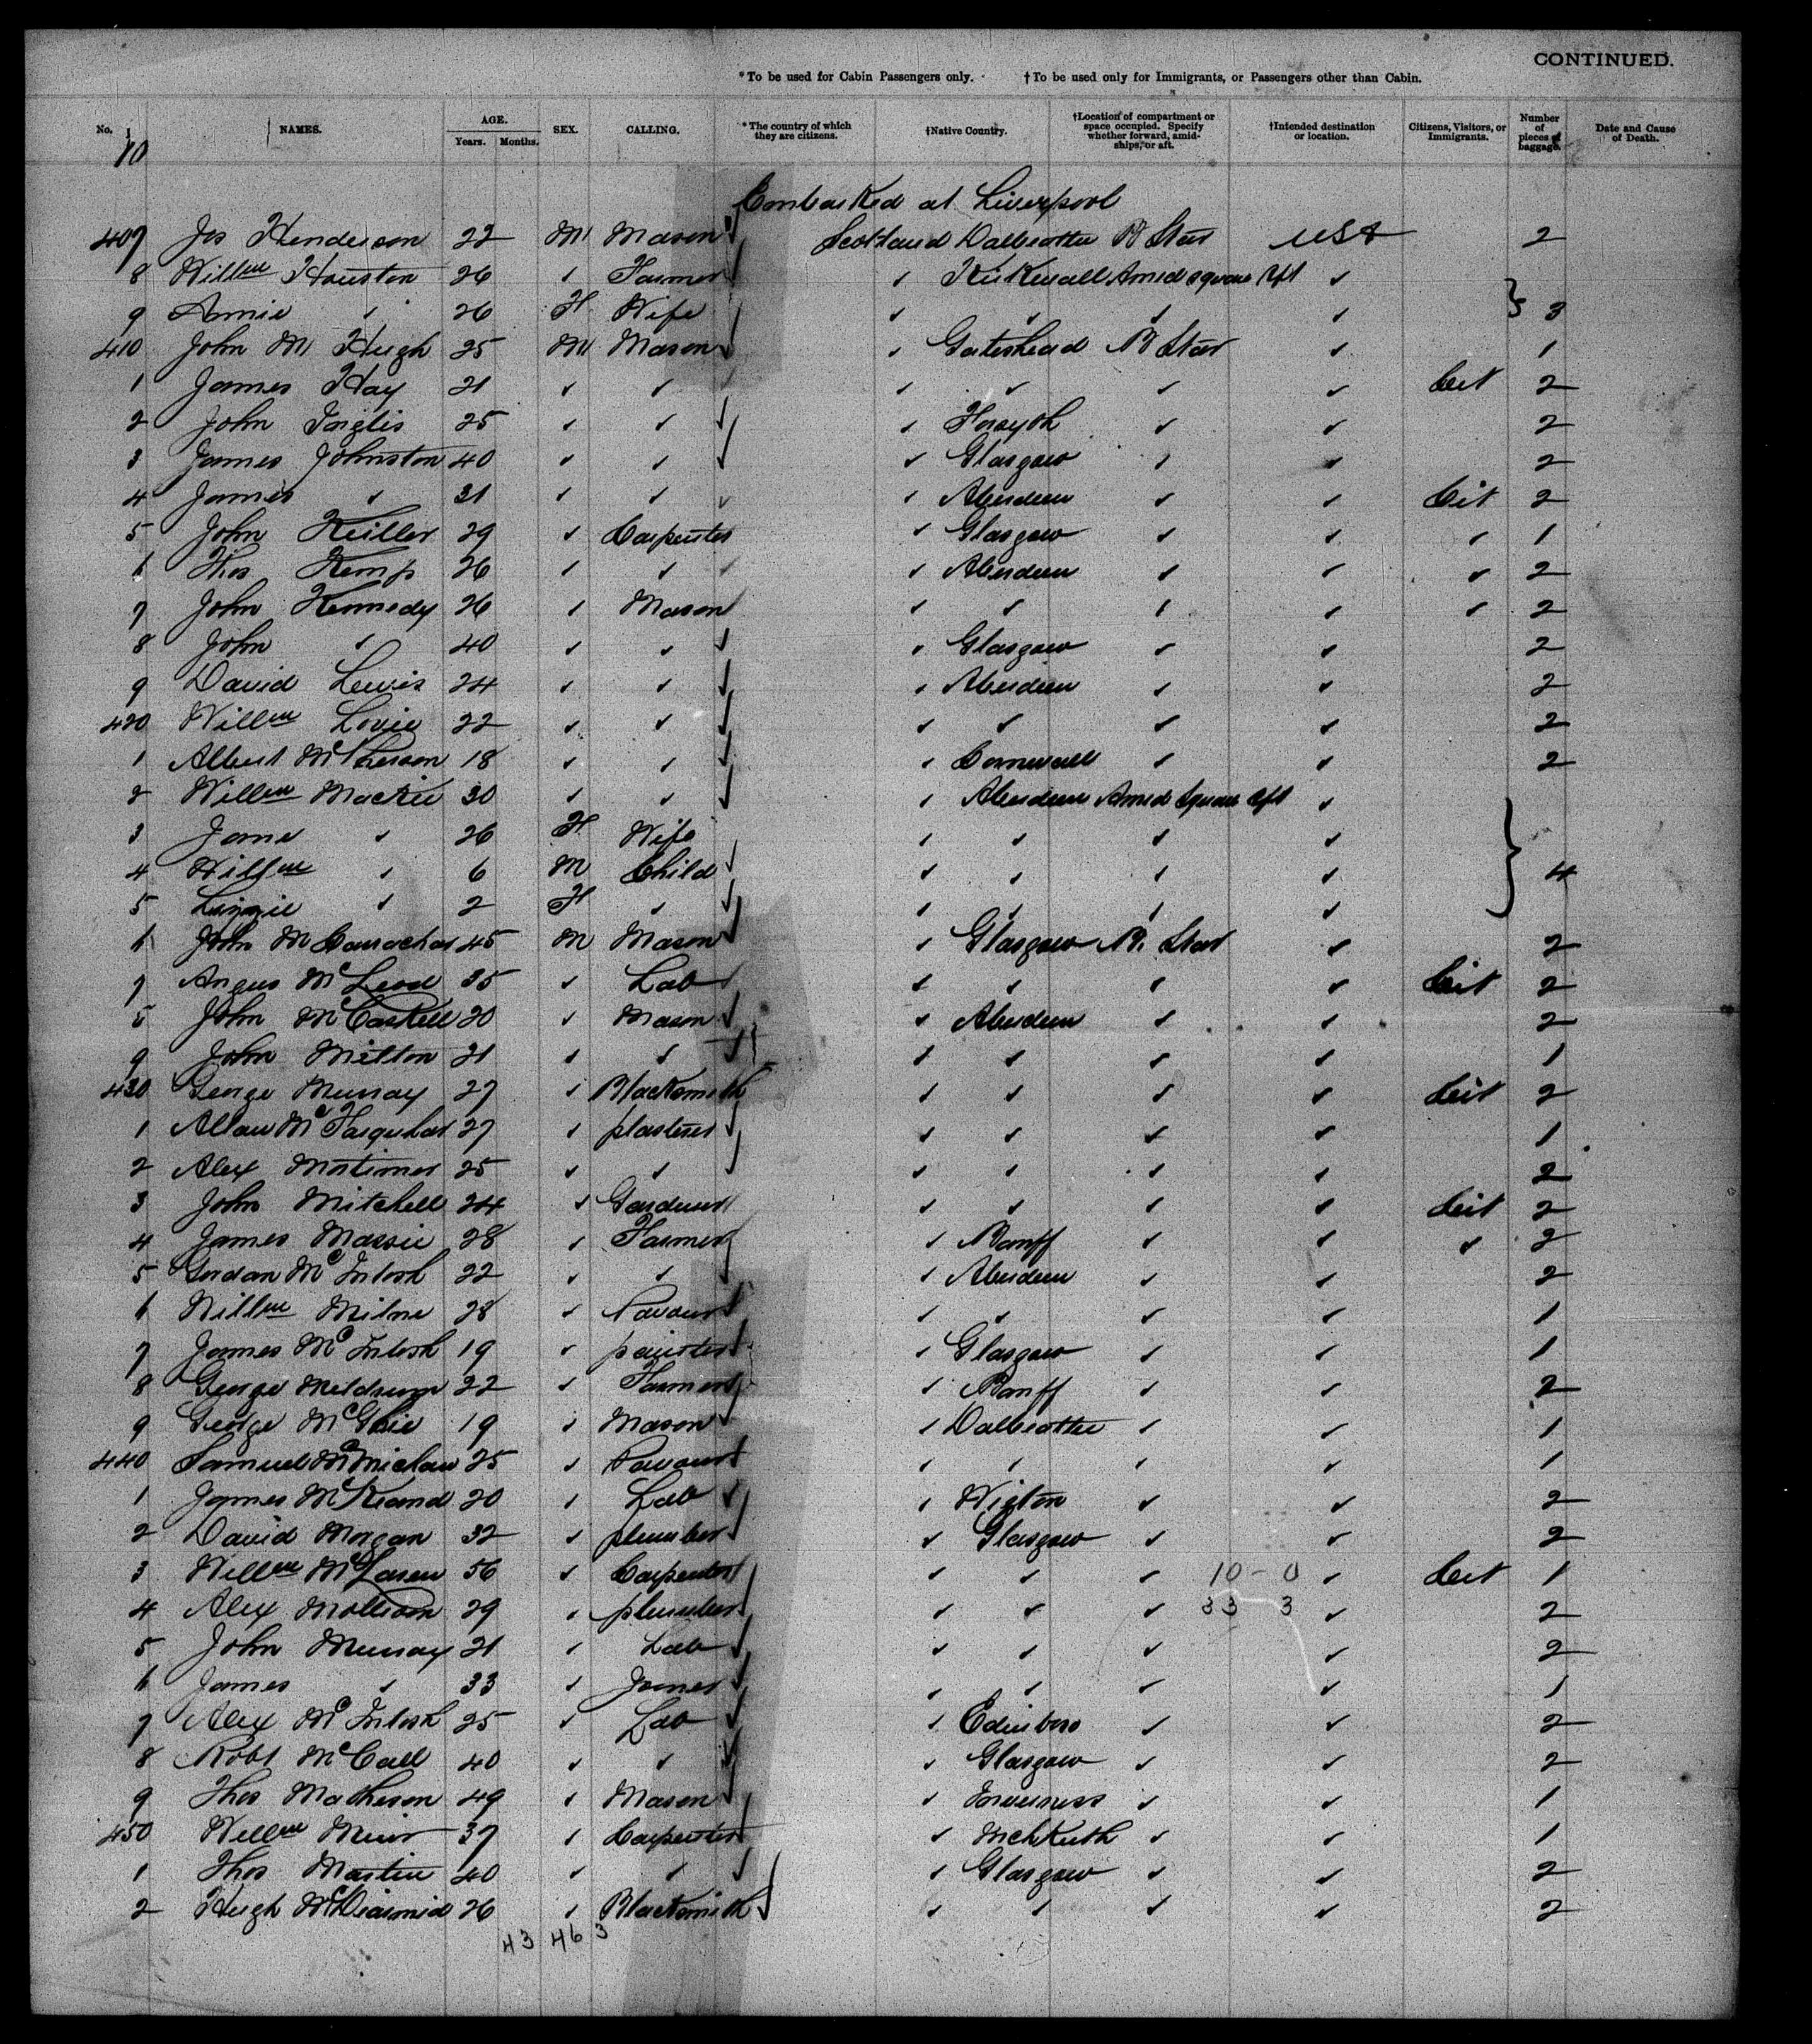 CONTINUED.
*To be used for Cabin Passengers only. †To be used only for Immigrants, or Passengers other than Cabin.
No. NAMES. AGE. Years. Months. SEX. CALLING. *The country of which they are citizens. †Native Country. †Location of compartment or space occupied. Specify whether forward, amidships, or aft. †Intended destination or location. Citizens, Visitors, or Immigrants. Number of pieces of baggage. Date and Cause of Death.
10
Embarked at Liverpool
407 Jos Henderson 22 M Mason Scotland Dalbeattie B Star USA 2
8 Willm Houston 26 ✓ Farmer ✓ Kirkwall Amid square Aft ✓
9 Annie ✓ 26 F Wife ✓ ✓ ✓ ✓ } 3
410 John M Hugh 25 M Mason ✓ Gateshead B Star ✓ 1
1 James Hay 21 ✓ ✓ ✓ ✓ ✓ ✓ Cit 2
2 John Inglis 25 ✓ ✓ ✓ Forsyth ✓ ✓ 2
3 James Johnston 40 ✓ ✓ ✓ Glasgow ✓ ✓ 2
4 James ✓ 31 ✓ ✓ ✓ Aberdeen ✓ ✓ Cit 2
5 John Keiller 29 ✓ Carpenter ✓ Glasgow ✓ ✓ ✓ 1
6 Thos Kemp 26 ✓ ✓ ✓ Aberdeen ✓ ✓ ✓ 2
7 John Kennedy 26 ✓ Mason ✓ ✓ ✓ ✓ ✓ 2
8 John ✓ 40 ✓ ✓ ✓ Glasgow ✓ ✓ 2
9 David Lewis 24 ✓ ✓ ✓ Aberdeen ✓ ✓ 2
420 Willm Lovie 22 ✓ ✓ ✓ ✓ ✓ ✓ 2
1 Albert McPherson 18 ✓ ✓ ✓ Cornwall ✓ ✓ 2
2 Willm Mackie 30 ✓ ✓ ✓ Aberdeen Amid Square Aft ✓
3 Jane ✓ 26 F Wife ✓ ✓ ✓ ✓
4 Willm ✓ 6 M Child ✓ ✓ ✓ ✓ } 4
5 Lizzie ✓ 2 F ✓ ✓ ✓ ✓ ✓
6 John McConnachar 45 M Mason ✓ Glasgow B. Star ✓ 2
7 Angus McLeod 35 ✓ Lab ✓ ✓ ✓ ✓ Cit 2
8 John McCaskell 20 ✓ Mason ✓ Aberdeen ✓ ✓ 2
9 John Milton 21 ✓ ✓ ✓ ✓ ✓ ✓ 1
430 George Murray 27 ✓ Blacksmith ✓ ✓ ✓ ✓ Cit 2
1 Allan McFarquhar 27 ✓ plasterer ✓ ✓ ✓ ✓ 1
2 Alex Mortimer 25 ✓ ✓ ✓ ✓ ✓ ✓ 2
3 John Mitchell 24 ✓ Gardener ✓ ✓ ✓ ✓ Cit 2
4 James Massie 28 ✓ Farmer ✓ Banff ✓ ✓ ✓ 2
5 Gordon McIntosh 22 ✓ ✓ ✓ Aberdeen ✓ ✓ 2
6 Willm Milne 28 ✓ ✓ ✓ ✓ ✓ 1
7 James McIntosh 19 ✓ painter ✓ Glasgow ✓ ✓ 1
8 George Meldrum 22 ✓ Farmer ✓ Banff ✓ ✓ 2
9 George McGhie 19 ✓ Mason ✓ Dalbeattie ✓ ✓ 1
440 Samuel 25 ✓ ✓ ✓ ✓ ✓ 1
1 James McKeand 20 ✓ Lab ✓ Wigton ✓ ✓ 2
2 David Morgan 32 ✓ plumber ✓ Glasgow ✓ ✓ 2
3 Willm McLaren 56 ✓ Carpenter ✓ ✓ ✓ 10-0 ✓ Cit 1
4 Alex Mollison 29 ✓ plumber ✓ ✓ ✓ 33 3 ✓ 2
5 John Murray 21 ✓ Lab ✓ ✓ ✓ ✓ 2
6 James ✓ 33 ✓ Joiner ✓ ✓ ✓ ✓ 1
7 Alex McIntosh 25 ✓ Lab ✓ Edinboro ✓ ✓ 2
8 Robt McCall 40 ✓ ✓ ✓ Glasgow ✓ ✓ 2
9 Thos Matheson 49 ✓ Mason ✓ Inverness ✓ ✓ 1
450 Willm Muir 37 ✓ Carpenter ✓ ✓ ✓ 1
1 Thos Martin 40 ✓ ✓ ✓ Glasgow ✓ ✓ 2
2 Hugh McDiarmid 26 ✓ Blacksmith ✓ ✓ ✓ ✓ 2
43 46 3